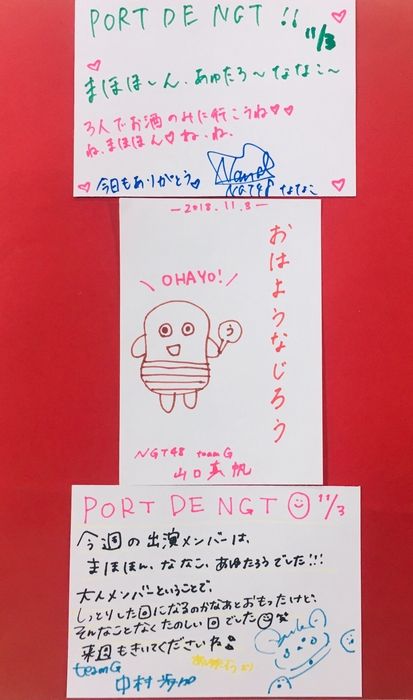 PORT DE NGT !! 11/3
まほほ〜ん、あゆたろ〜ななこ〜
3人でお酒のみに行こうね♡♡
ね、まほほん♡ね、ね、
今日もありがとう♡
NGT48 ななこ
—2018.11.3—
おはようなじろう
\ OHAYO! /
う
NGT48 teamG
山口真帆
PORT DE NGT 11/3
今週の出演メンバーは、
まほほん、ななこ、あゆたろうでした!!!
大人メンバーということで、
しっとりした回になるのかなぁとおもったけど、
そんなことなくたのしい回でした
来週もきいてくださいね
あゆたろうより
teamG
中村歩加